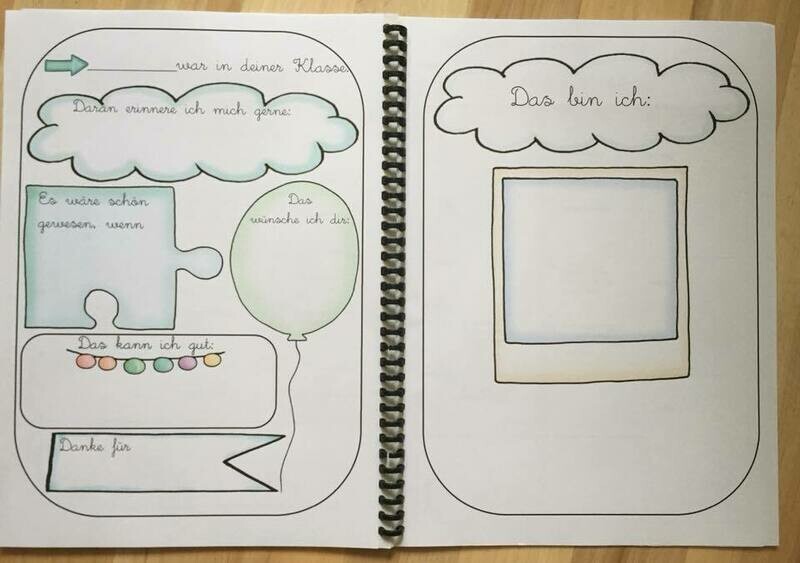 __________war in deiner Klasse.
Daran erinnere ich mich gerne:
Es wäre schön
gewesen, wenn
Das
wünsche ich dir:
Das kann ich gut:
Danke für
Das bin ich: